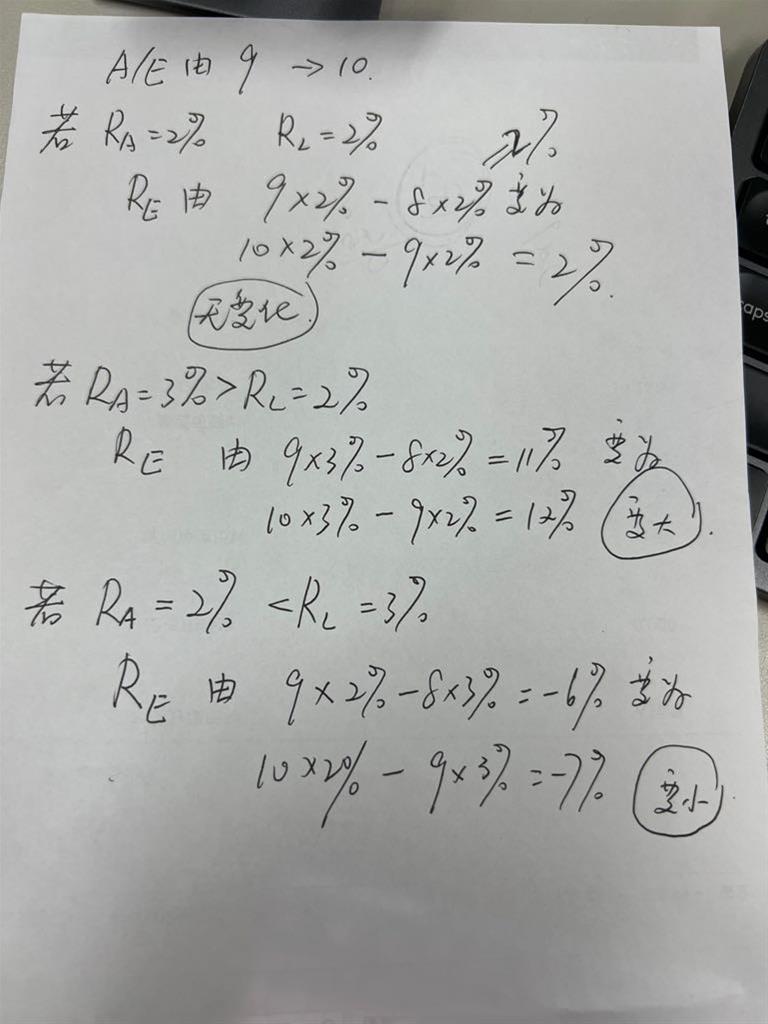 A/E 由 9 → 10.
若 RA = 2% RL = 2% 2%
RE 由 9×2% - 8×2% 变为
10×2% - 9×2% = 2%.
无变化
若 RA = 3% > RL = 2%
RE 由 9×3% - 8×2% = 11% 变为
10×3% - 9×2% = 12% 变大.
若 RA = 2% < RL = 3%
RE 由 9×2% - 8×3% = -6% 变为
10×2% - 9×3% = -7% 变小.